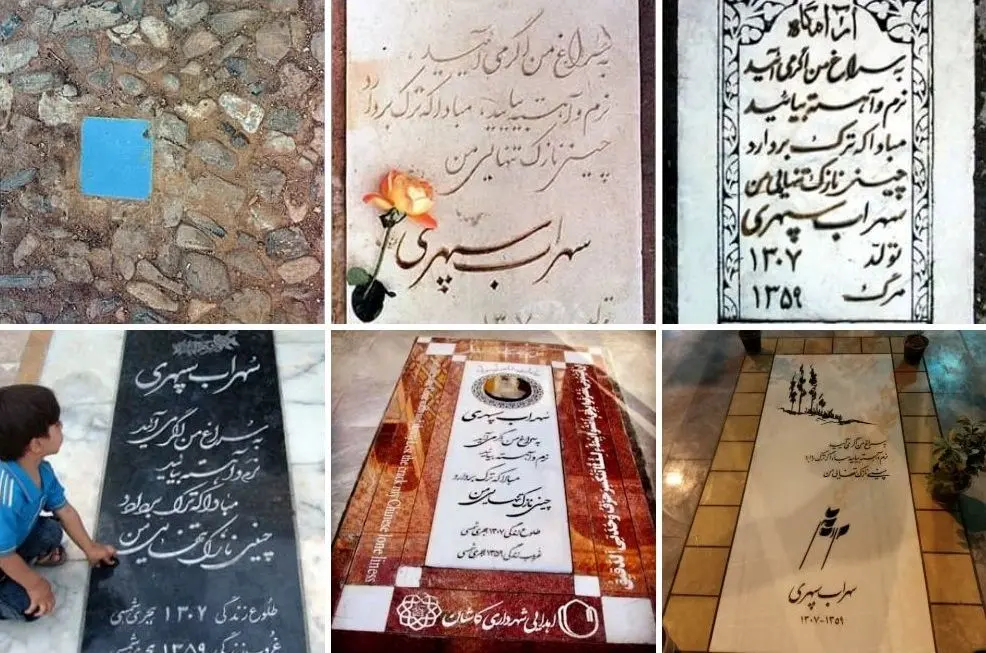 به سراغ من اگر می آیید،
نرم و آهسته بیایید، مبادا که ترک بردارد
چینی نازک تنهایی من
سهراب سپهری
تولد ۱۳۰۷
آرامگاه
به سراغ من اگر می آئید
نرم و آهسته بیائید
مبادا که ترک بردارد
چینی نازک تنهایی من
سهراب سپهری
تولد ۱۳۰۷
مرگ ۱۳۵۹
سهراب سپهری
به سراغ من اگر می آئید
نرم و آهسته بیایید
مبادا که ترک بردارد
چینی نازک تنهایی من
طلوع زندگی ۱۳۰۷ هجری شمسی
غروب زندگی ۱۳۵۹ هجری شمسی
سهراب سپهری
به سراغ من اگر می آئید
نرم و آهسته بیایید
مبادا که ترک بردارد
چینی نازک تنهایی من
طلوع زندگی ۱۳۰۷ هجری شمسی
غروب زندگی ۱۳۵۹ هجری شمسی
crack my Chinese loneliness
اهدایی شهرداری کاشان
به سراغ من اگر می آیید
نرم و آهسته بیایید، مبادا که ترک بردارد
چینی نازک تنهایی من
سهراب سپهری
۱۳۰۷-۱۳۵۹